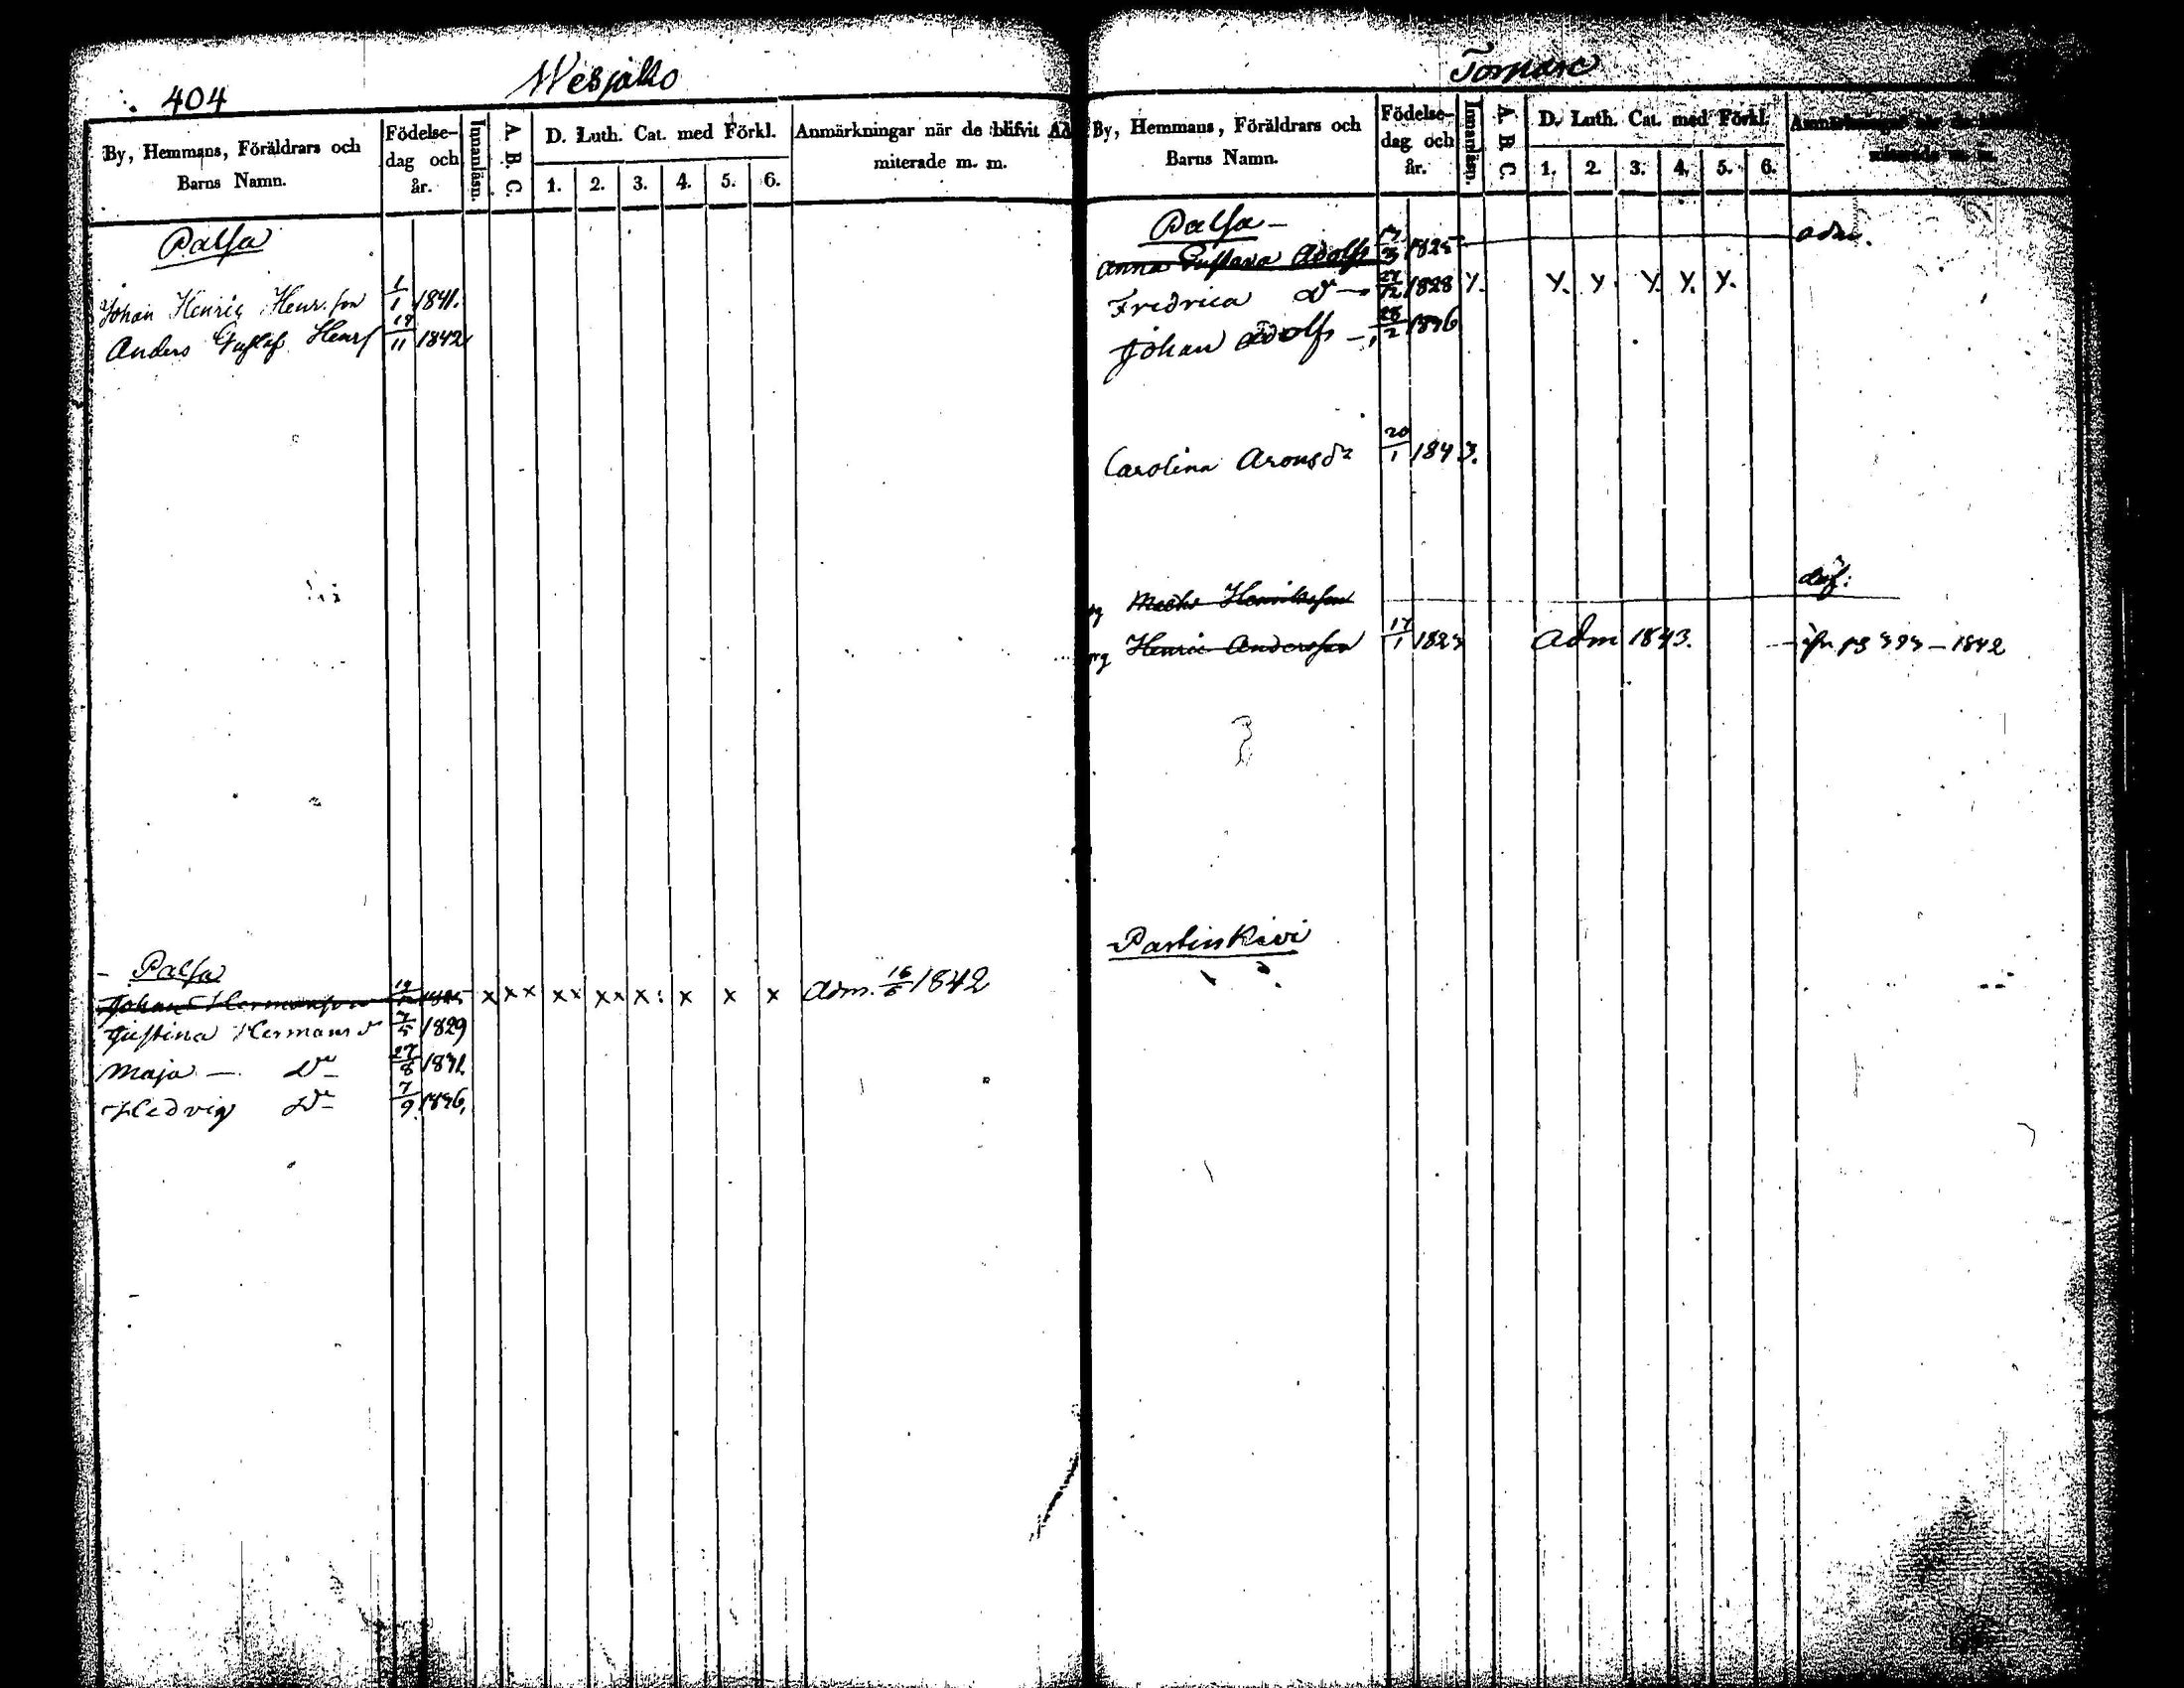 404
Wesjako
By, Hemmans, Föräldrars och Barns Namn.
Födelse-dag och år.
Innanläsn.
A. B. C.
D. Luth. Cat. med Förkl.
1. 2. 3. 4. 5. 6.
Anmärkningar när de blifvit Ad
miterade m. m.
Palsa
Johan Henric Henr.son 1/1 1841.
Anders Gustaf Henrs 19/11 1842
- Palsa
Johan Hermansson x x x x x x x x : x x x Adm. 16/6 1842
Justina Hermans d 7/5 1829
Maja — D:o 27/8 1831.
Hedvig D:o 7/9 1836.
Tomare
By, Hemmans, Föräldrars och
Barns Namn.
Födelse-dag och år.
Innanläsn.
A B C.
D. Luth. Cat. med Förkl.
1. 2. 3. 4. 5. 6.
Palsa -
Anna Gustava Adolfs 1825 adm.
Fredrica D:o 27/12 1828 y. y. y. y. y. y.
Johan Adolfs - 28/2 1836
Carolina Aronsdr 20/1 1843.
Henrikssson
Henric Andersson 17/1 Adm 1843. - 1842
Partinkivi